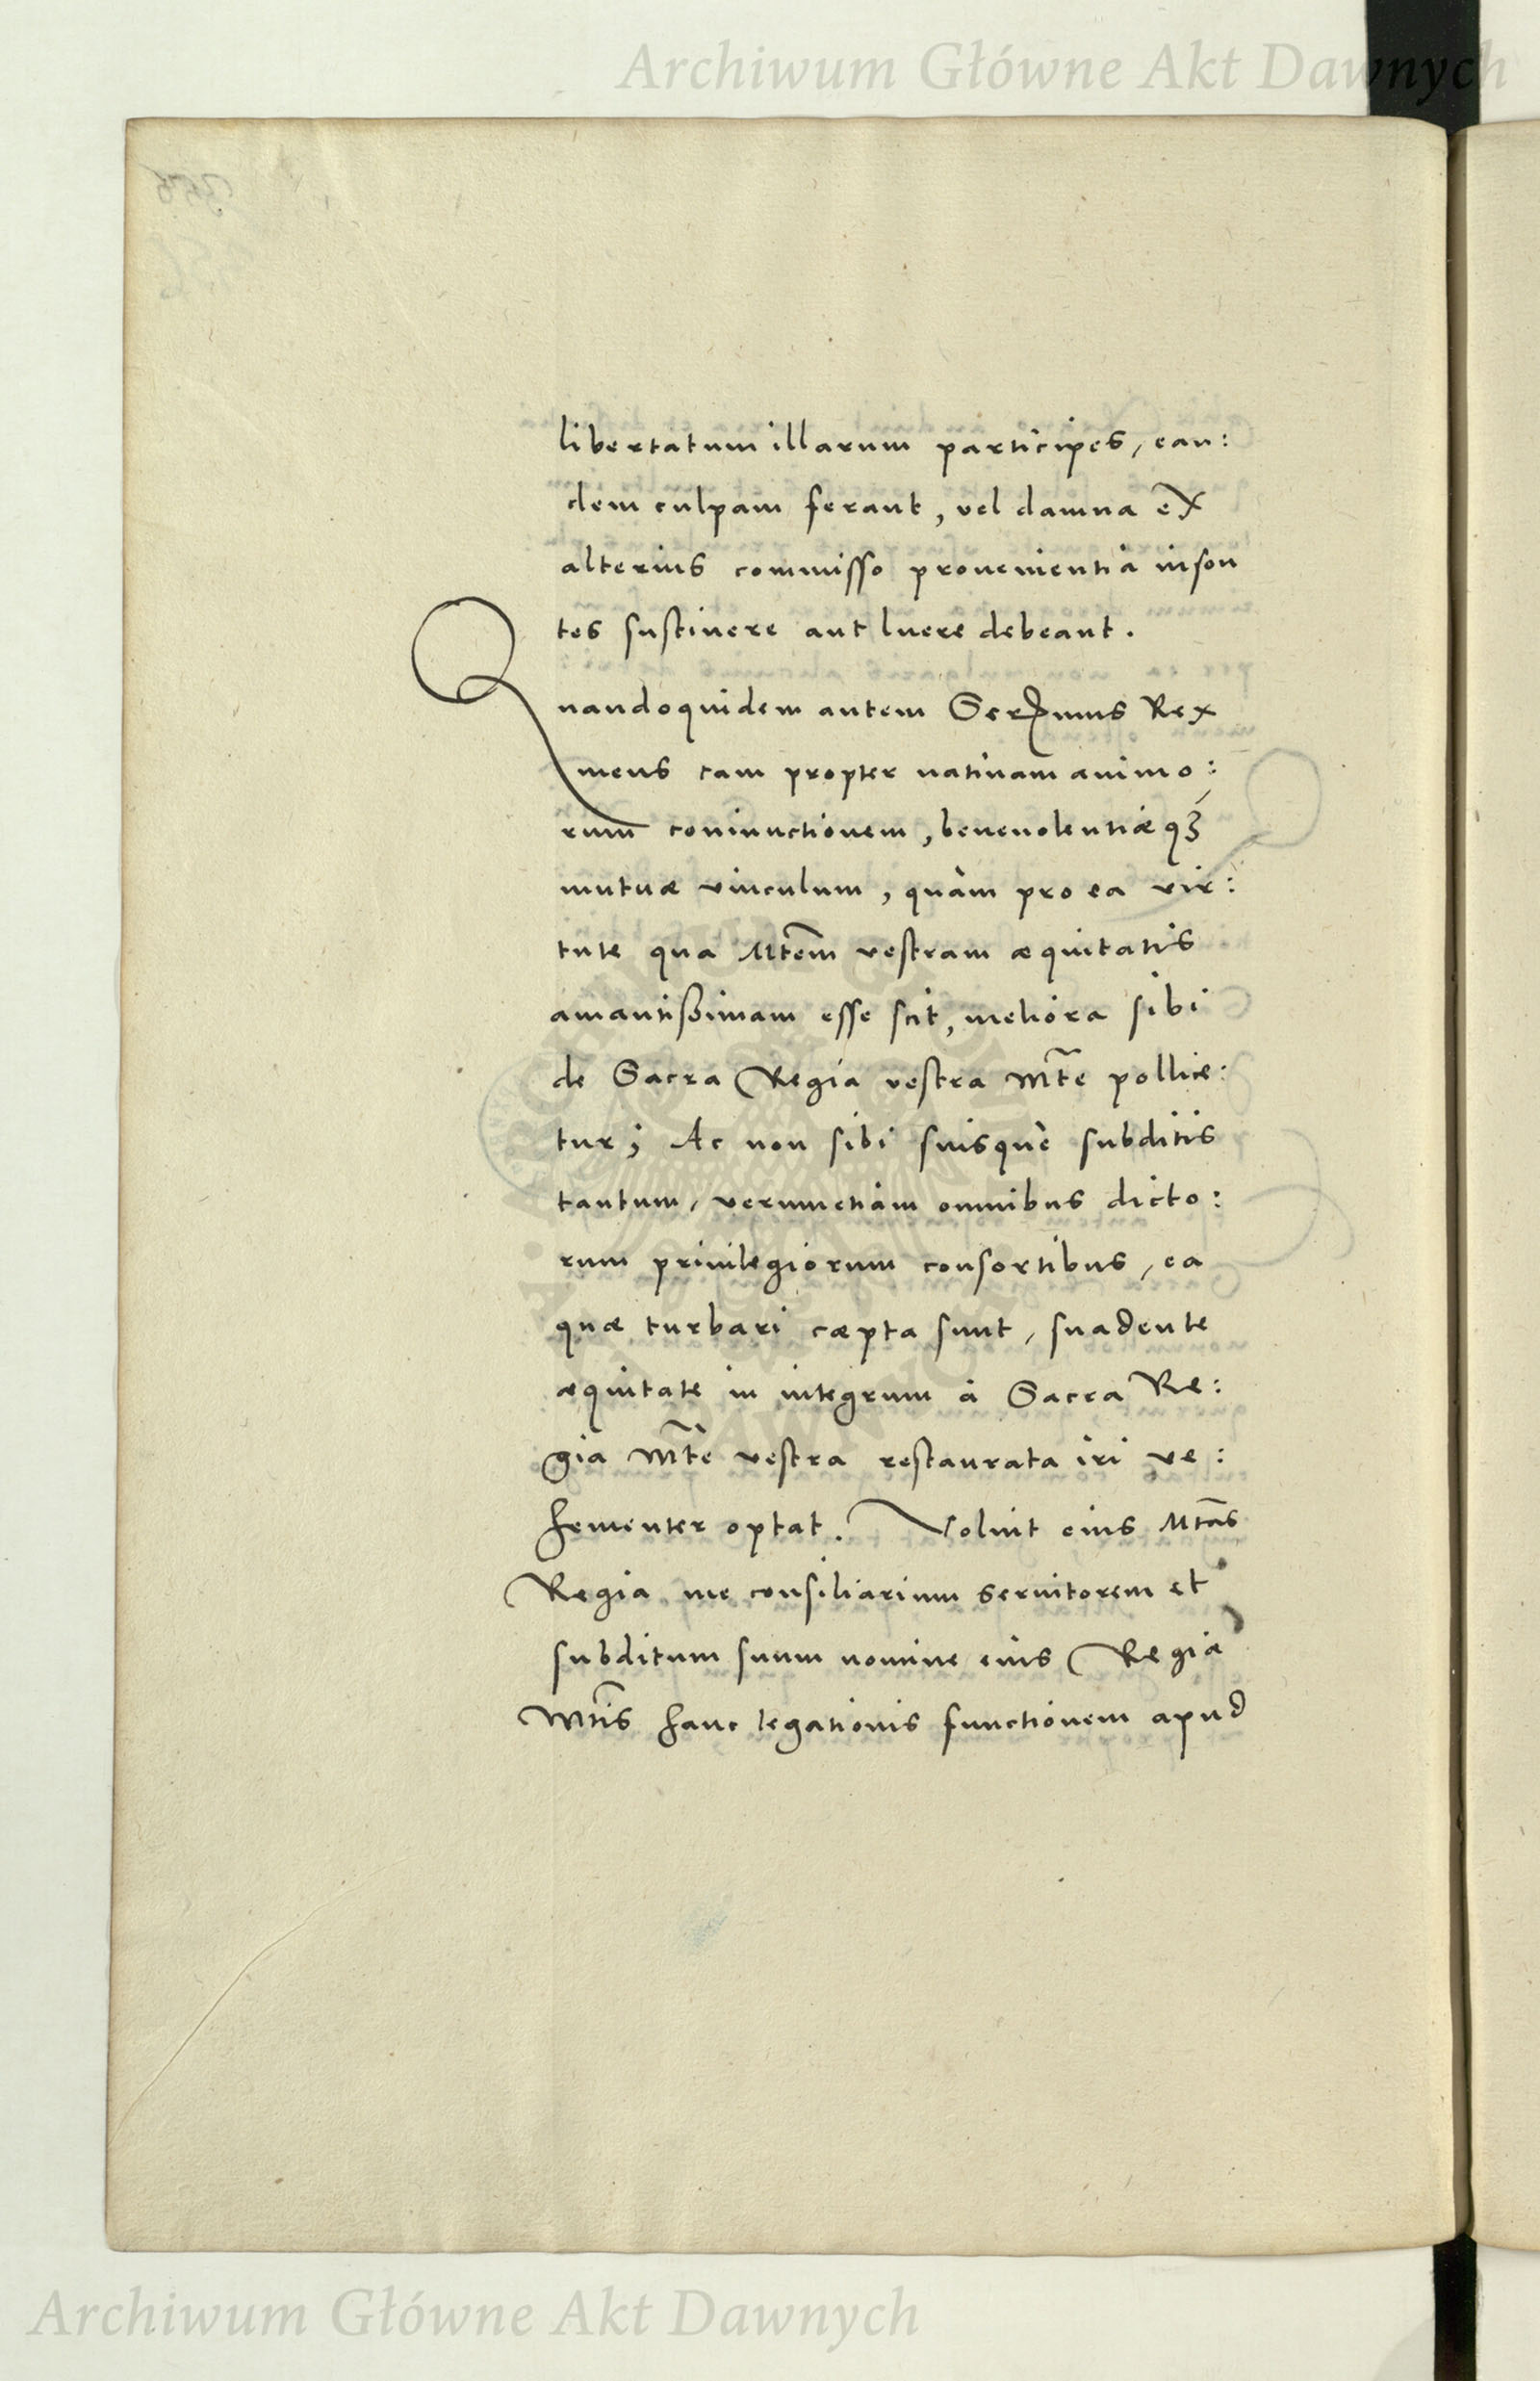 Archiwum Główne Akt Dawnych
libertatum illarum participes, ean:
dem culpam ferant, vel damna ex
alterius commisso prouenientia inson
tes sustinere aut luere debeant.
Quandoquidem autem Serᵐmus Rex
meus tam propter natiuam animo:
rum coniunctionem, beneuolentiæqꝫ
mutuæ vinculum, quàm pro ea vir:
tute qua Mtẽm vestram æquitatis
amantißimam esse scit, meliora sibi
de Sacra Regia vestra Mt̃e pollice:
tur; Ac non sibi suisquè subditis
tantum, verumetiàm omnibus dicto:
rum priuilegiorum consortibus, ea
quæ turbari cæpta sunt, suadente
æquitate in integrum à Sacra Re:
gia Mt̃e vestra restaurata iri ve:
hementer optat. Voluit eius Mtãs
Regia me consiliarium seruitorem et
subditum suum nomine eius Regiæ
Mt̃is hanc legationis functionem apud
Archiwum Główne Akt Dawnych